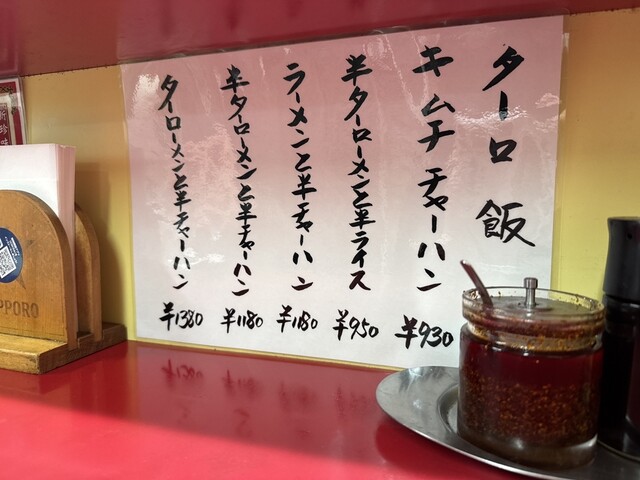 ターロ飯
キムチチャーハン
¥930
半ターローメンと半ライス
¥950
ラーメンと半チャーハン
¥1180
半ターローメンと半チャーハン
¥1180
ターローメンと半チャーハン
¥1380